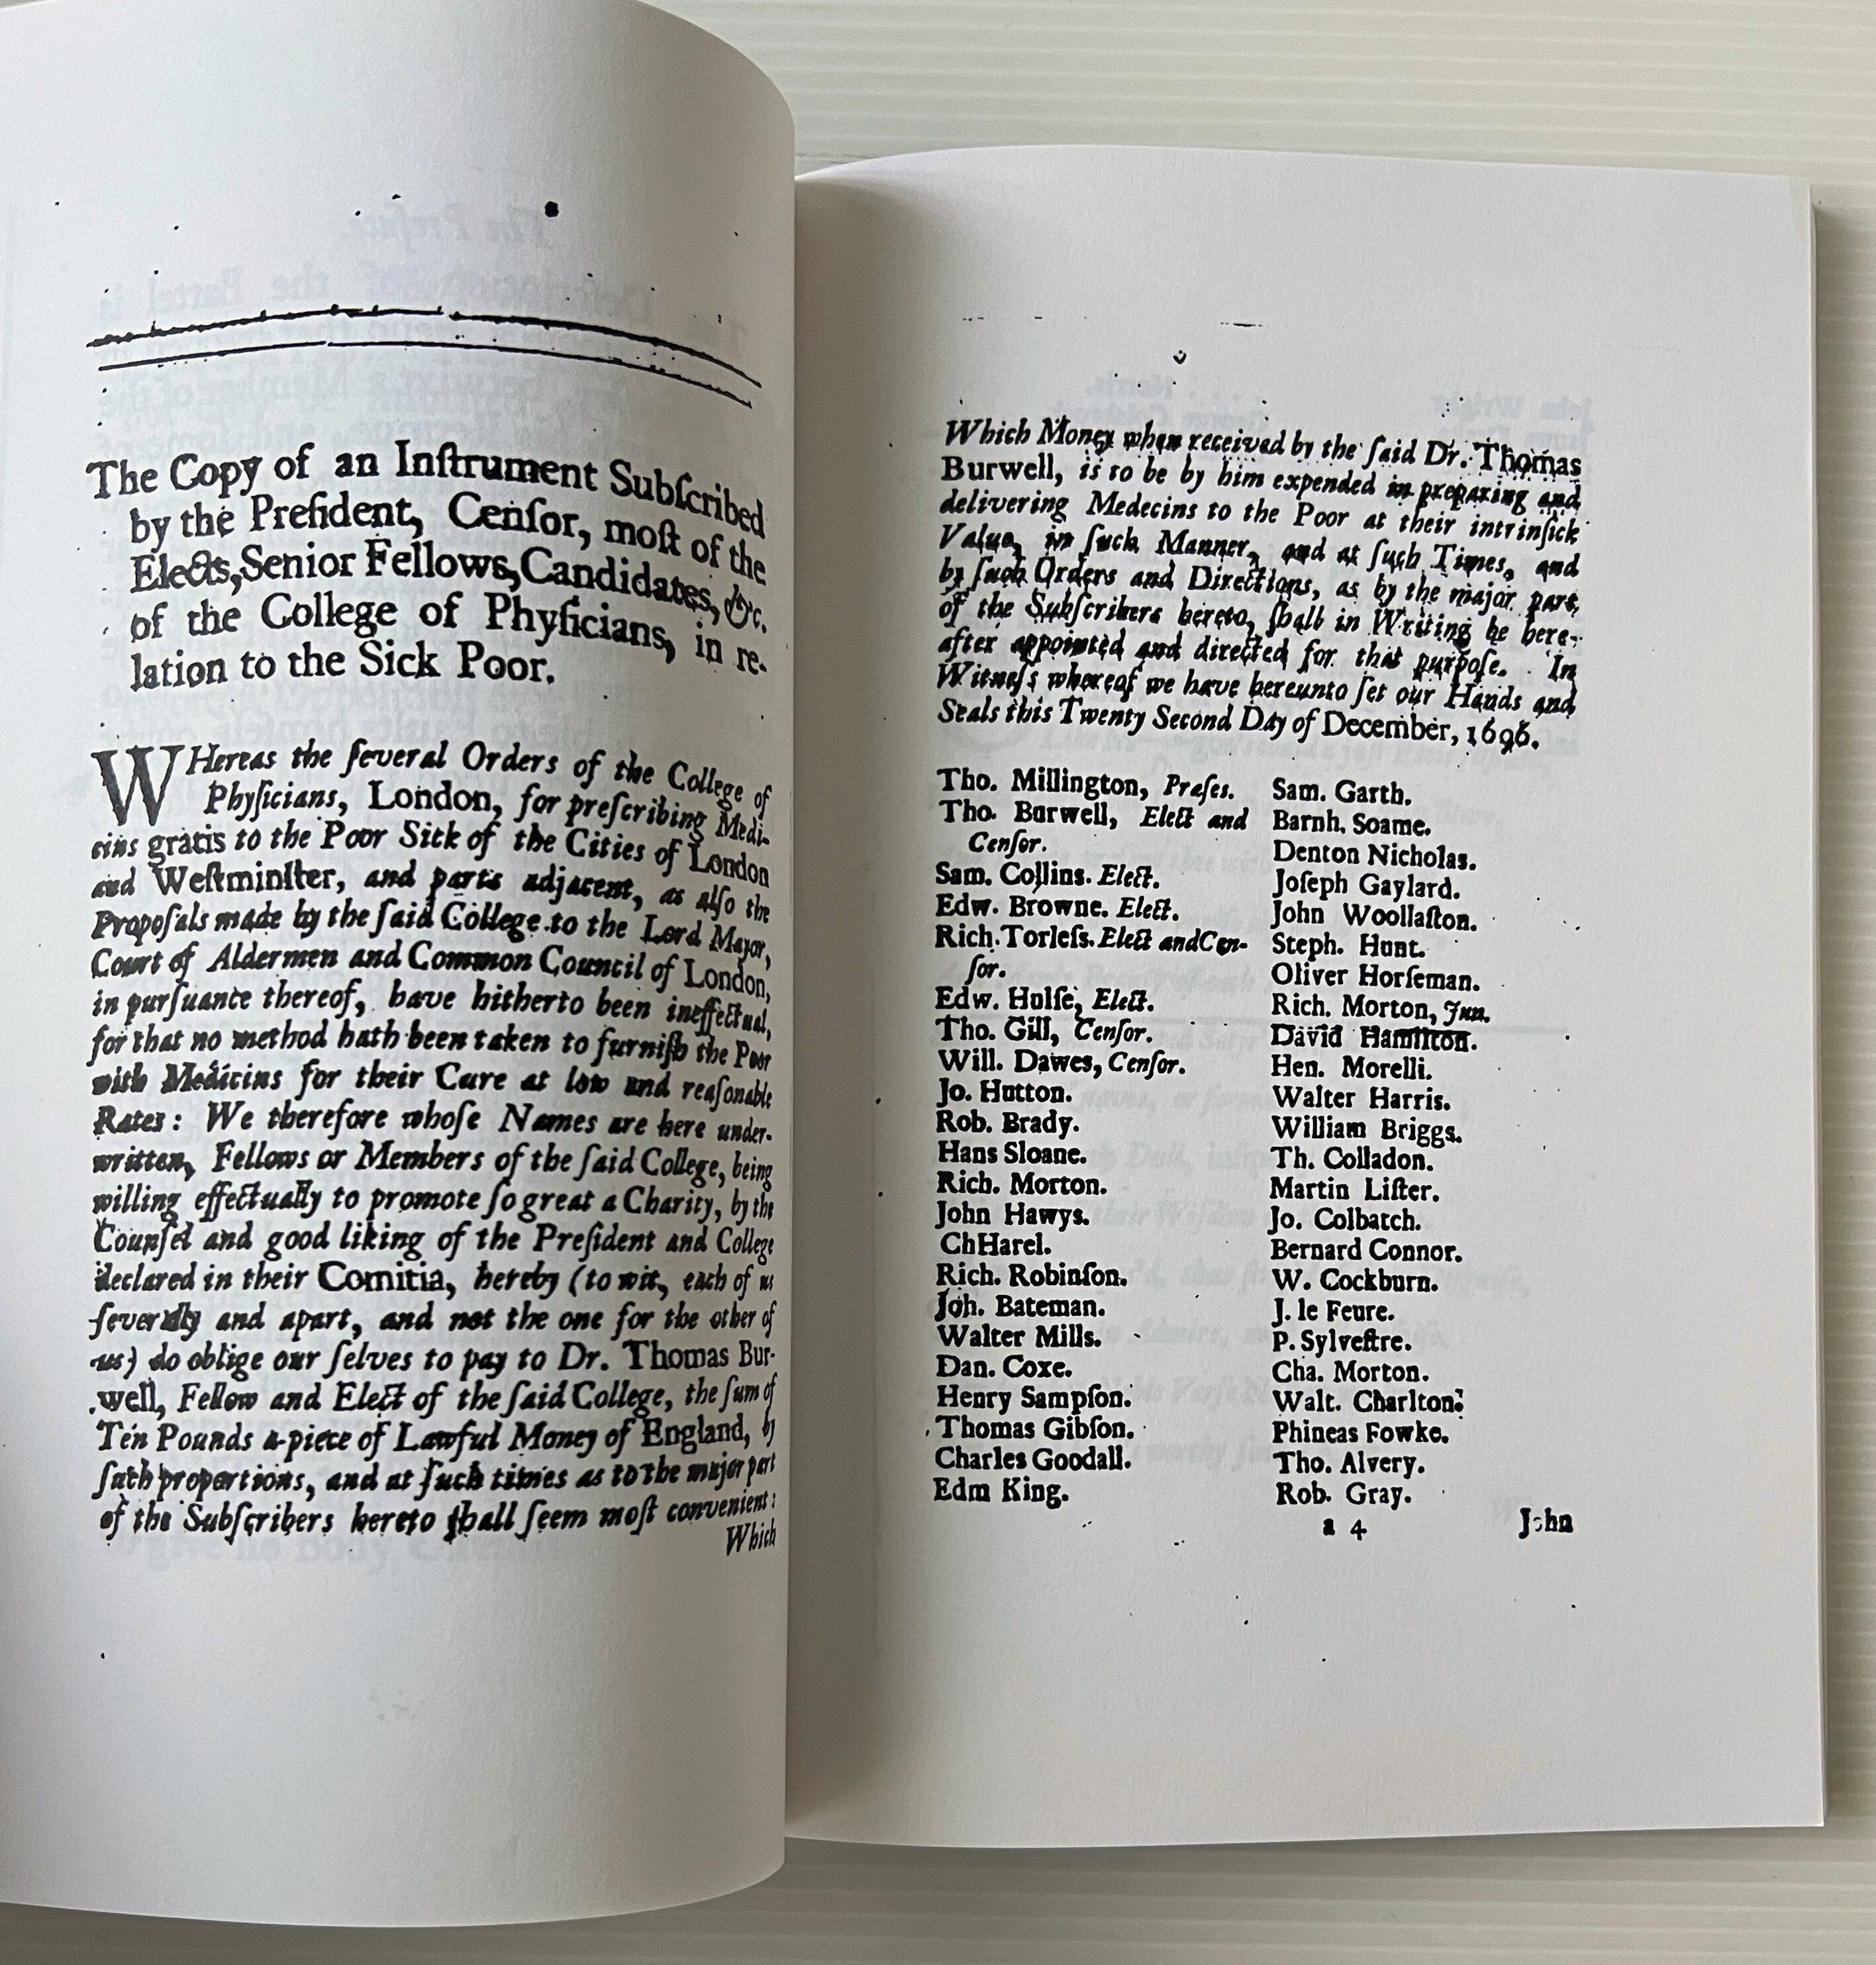 The Copy of an Inſtrument Subſcribed
by the Preſident, Cenſor, moſt of the
Elects, Senior Fellows, Candidates, &c.
of the College of Phyſicians, in re-
lation to the Sick Poor.
WHereas the ſeveral Orders of the College of
Phyſicians, London, for preſcribing Medi-
cins gratis to the Poor Sick of the Cities of London
and Weſtminſter, and parts adjacent, as alſo the
Propoſals made by the ſaid College to the Lord Mayor,
Court of Aldermen and Common Council of London,
in purſuance thereof, have hitherto been ineffectual,
for that no method hath been taken to furniſh the Poor
with Medicins for their Cure at low and reaſonable
Rates: We therefore whoſe Names are here under-
written, Fellows or Members of the ſaid College, being
willing effectually to promote ſo great a Charity, by the
Counſel and good liking of the Preſident and College
declared in their Comitia, hereby (to wit, each of us
ſeverally and apart, and not the one for the other of
us) do oblige our ſelves to pay to Dr. Thomas Bur-
well, Fellow and Elect of the ſaid College, the ſum of
Ten Pounds a-piece of Lawful Money of England, by
ſuch proportions, and at ſuch times as to the major part
of the Subſcribers hereto ſhall ſeem moſt convenient:
Which
Which Money when received by the ſaid Dr. Thomas
Burwell, is to be by him expended in preparing and
delivering Medecins to the Poor at their intrinſick
Value, in ſuch Manner, and at ſuch Times, and
by ſuch Orders and Directions, as by the major part
of the Subſcribers hereto, ſhall in Writing be here-
after appointed and directed for that purpoſe. In
Witneſs whereof we have hereunto ſet our Hands and
Seals this Twenty Second Day of December, 1696.
Tho. Millington, Præſes.
Tho. Burwell, Elect and
Cenſor.
Sam. Collins. Elect.
Edw. Browne. Elect.
Rich. Torleſs. Elect and Cen-
ſor.
Edw. Hulſe, Elect.
Tho. Gill, Cenſor.
Will. Dawes, Cenſor.
Jo. Hutton.
Rob. Brady.
Hans Sloane.
Rich. Morton.
John Hawys.
Ch Harel.
Rich. Robinſon.
Joh. Bateman.
Walter Mills.
Dan. Coxe.
Henry Sampſon.
Thomas Gibſon.
Charles Goodall.
Edm King.
Sam. Garth.
Barnh. Soame.
Denton Nicholas.
Joſeph Gaylard.
John Woollaſton.
Steph. Hunt.
Oliver Horſeman.
Rich. Morton, Jun.
David Hamilton.
Hen. Morelli.
Walter Harris.
William Briggs.
Th. Colladon.
Martin Liſter.
Jo. Colbatch.
Bernard Connor.
W. Cockburn.
J. le Feure.
P. Sylveſtre.
Cha. Morton.
Walt. Charlton.
Phineas Fowke.
Tho. Alvery.
Rob. Gray.
a 4 John